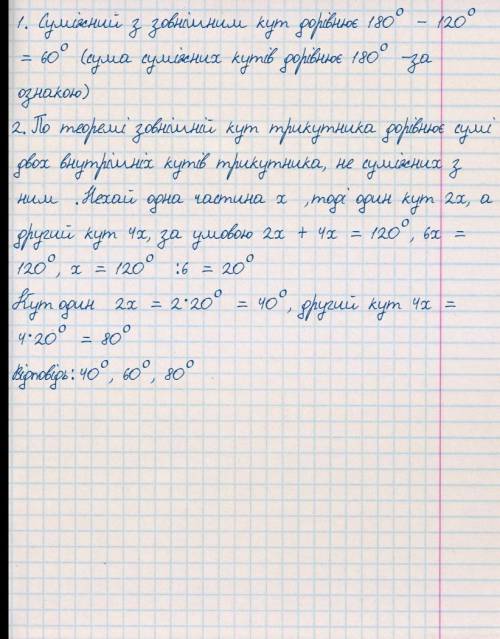 1. Суміжний з зовнішним кут дорівнює 180° - 120°
= 60° (сума суміжних кутів дорівнює 180° -за
ознакою)
2. По теоремі зовнішній кут трикутника дорівнює сумі
двох внутрішніх кутів трикутника, не суміжних з
ним . Нехай одна частина x , тоді один кут 2x, а
другий кут 4x, за умовою 2x + 4x = 120°, 6x =
120°, x = 120° :6 = 20°
Кут один 2x = 2*20° = 40°, другий кут 4x =
4*20° = 80°
Відповідь: 40°, 60°, 80°